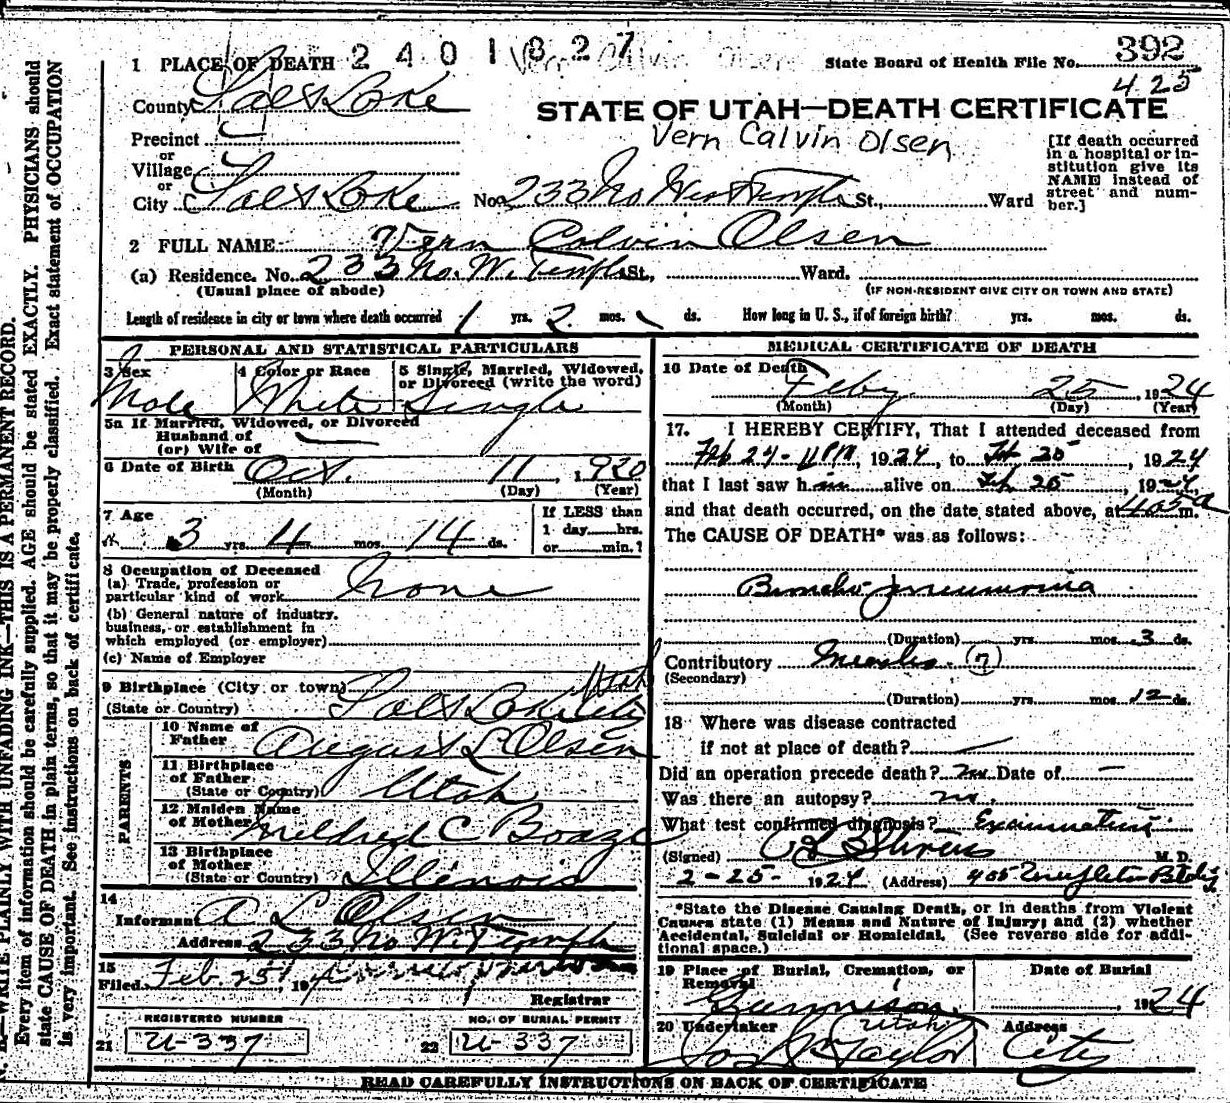 1 PLACE OF DEATH 2401827 Vern Calvin Olsen State Board of Health File No. 392
425
County Salt Lake
STATE OF UTAH—DEATH CERTIFICATE
Precinct
Vern Calvin Olsen
or
Village
or
City Salt Lake No. 233 No West Temple St., Ward
[If death occurred
in a hospital or in-
stitution give its
NAME instead of
street and num-
ber.]
2 FULL NAME Vern Calvin Olsen
(a) Residence. No. 233 No. W. Temple St., Ward.
(Usual place of abode) (IF NON-RESIDENT GIVE CITY OR TOWN AND STATE)
Length of residence in city or town where death occurred 1 yrs. 2 mos. ds. How long in U. S., if of foreign birth? yrs. mos. ds.
PERSONAL AND STATISTICAL PARTICULARS
3 Sex 4 Color or Race 5 Single, Married, Widowed,
or Divorced (write the word)
Male White Single
5a If Married, Widowed, or Divorced
Husband of
(or) Wife of
6 Date of Birth Oct. 11, 1920
(Month) (Day) (Year)
7 Age If LESS than
1 day hrs.
3 yrs. 4 mos. 14 ds. or min.?
8 Occupation of Deceased
(a) Trade, profession or
particular kind of work None
(b) General nature of industry,
business, or establishment in
which employed (or employer)
(c) Name of Employer
9 Birthplace (City or town) Utah
(State or Country) Salt Lake City
PARENTS
10 Name of
Father August L Olsen
11 Birthplace
of Father
(State or Country) Utah
12 Maiden Name
of Mother Mildred C
13 Birthplace
of Mother
(State or Country) Illinois
14
Informant A L Olsen
Address 233 No W. Temple
15
Filed Feb. 25, 19
Registrar
REGISTERED NUMBER NO. OF BURIAL PERMIT
21 U-337 22 U-337
MEDICAL CERTIFICATE OF DEATH
16 Date of Death
Feby. 25 1924
(Month) (Day) (Year)
17. I HEREBY CERTIFY, That I attended deceased from
Feb 24- 11 PM, 1924, to Feb 25, 1924
that I last saw him alive on Feb 25, 1924,
and that death occurred, on the date stated above, at 405a m.
The CAUSE OF DEATH* was as follows:
Broncho-pneumonia
(Duration) yrs. mos. 3 ds.
Contributory Measles. (7)
(Secondary)
(Duration) yrs. mos. 12 ds.
18 Where was disease contracted
if not at place of death?
Did an operation precede death? no Date of —
Was there an autopsy? no.
What test confirmed diagnosis? Examination
(Signed) M. D.
2-25- 1924 (Address) 405 Templeton Bldg
*State the Disease Causing Death, or in deaths from Violent
Causes state (1) Means and Nature of Injury; and (2) whether
Accidental, Suicidal or Homicidal. (See reverse side for addi-
tional space.)
19 Place of Burial, Cremation, or Date of Burial
Removal
Gunnison, 1924
Utah
20 Undertaker Address
Jos Taylor City
READ CAREFULLY INSTRUCTIONS ON BACK OF CERTIFICATE
N. B.—WRITE PLAINLY WITH UNFADING INK—THIS IS A PERMANENT RECORD.
Every item of information should be carefully supplied. AGE should be stated EXACTLY. PHYSICIANS should
state CAUSE OF DEATH in plain terms, so that it may be properly classified. Exact statement of OCCUPATION
is very important. See instructions on back of certificate.